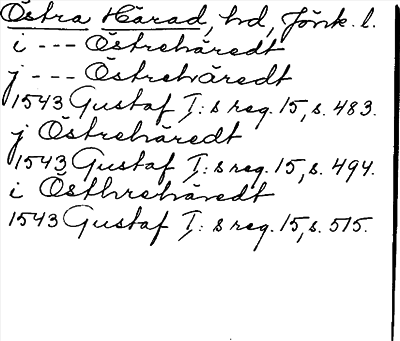 Östra Härad, hd, Jönk. l.
i --- Östrehäredt
j --- Östrehäredt
1543 Gustaf I:s reg. 15, s. 483.
j Östrehäredt
1543 Gustaf I:s reg. 15, s. 494.
i Östhrehäredt
1543 Gustaf I:s reg. 15, s. 515.